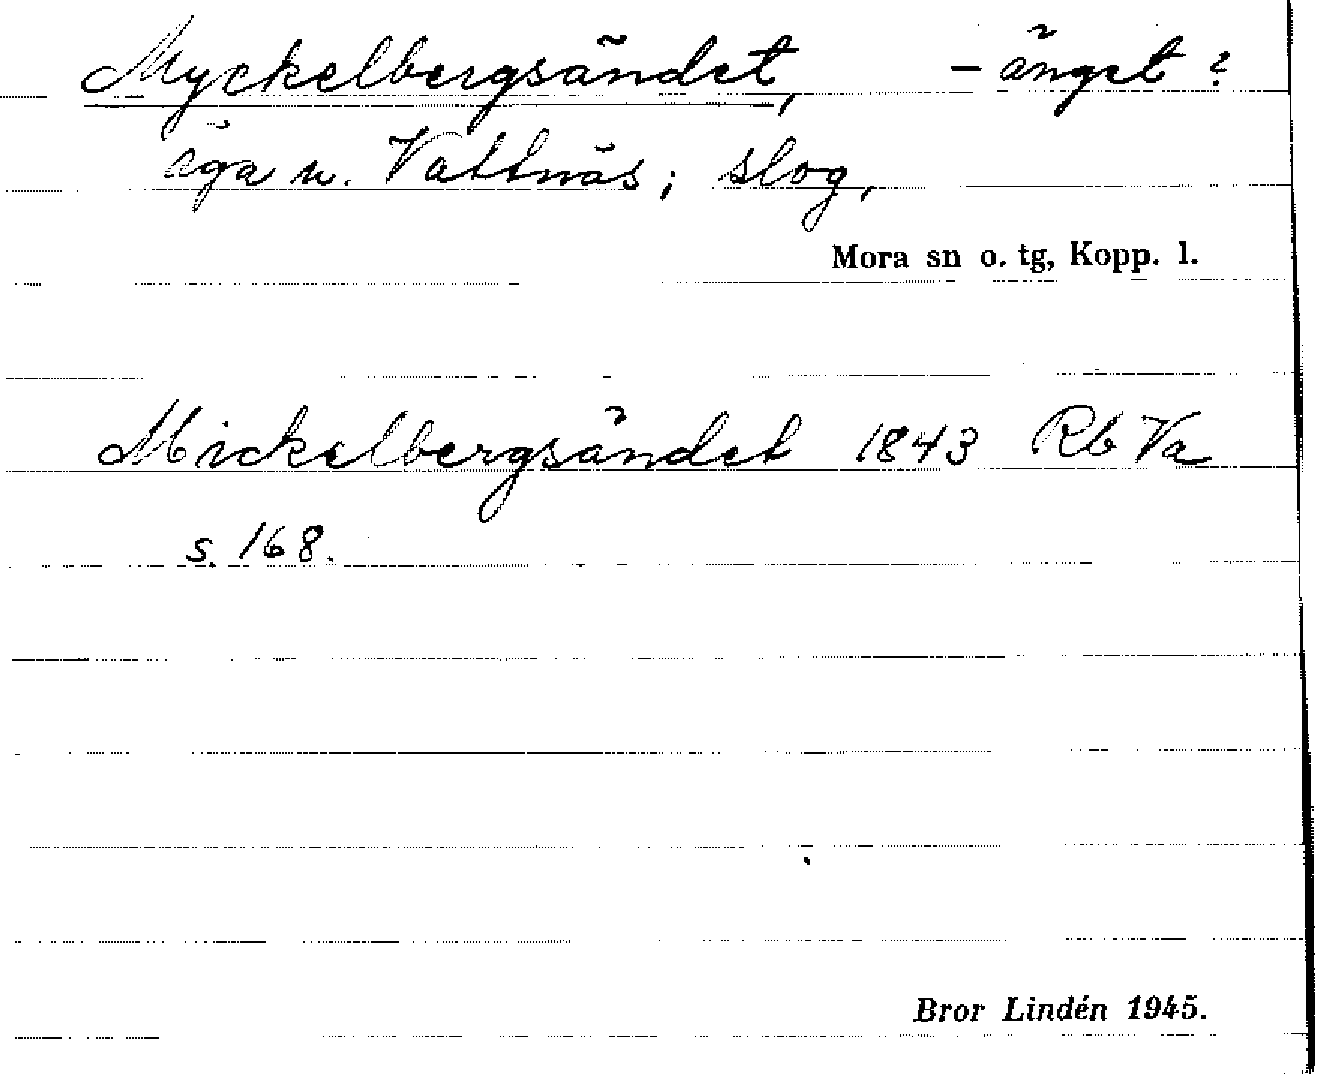 Myckelbergsändet, - änget?
äga u. Vattnäs; slog,
Mora sn o. tg, Kopp. l.
Mickelbergsändet 1843 Rb Va
s. 168.
Bror Lindén 1945.